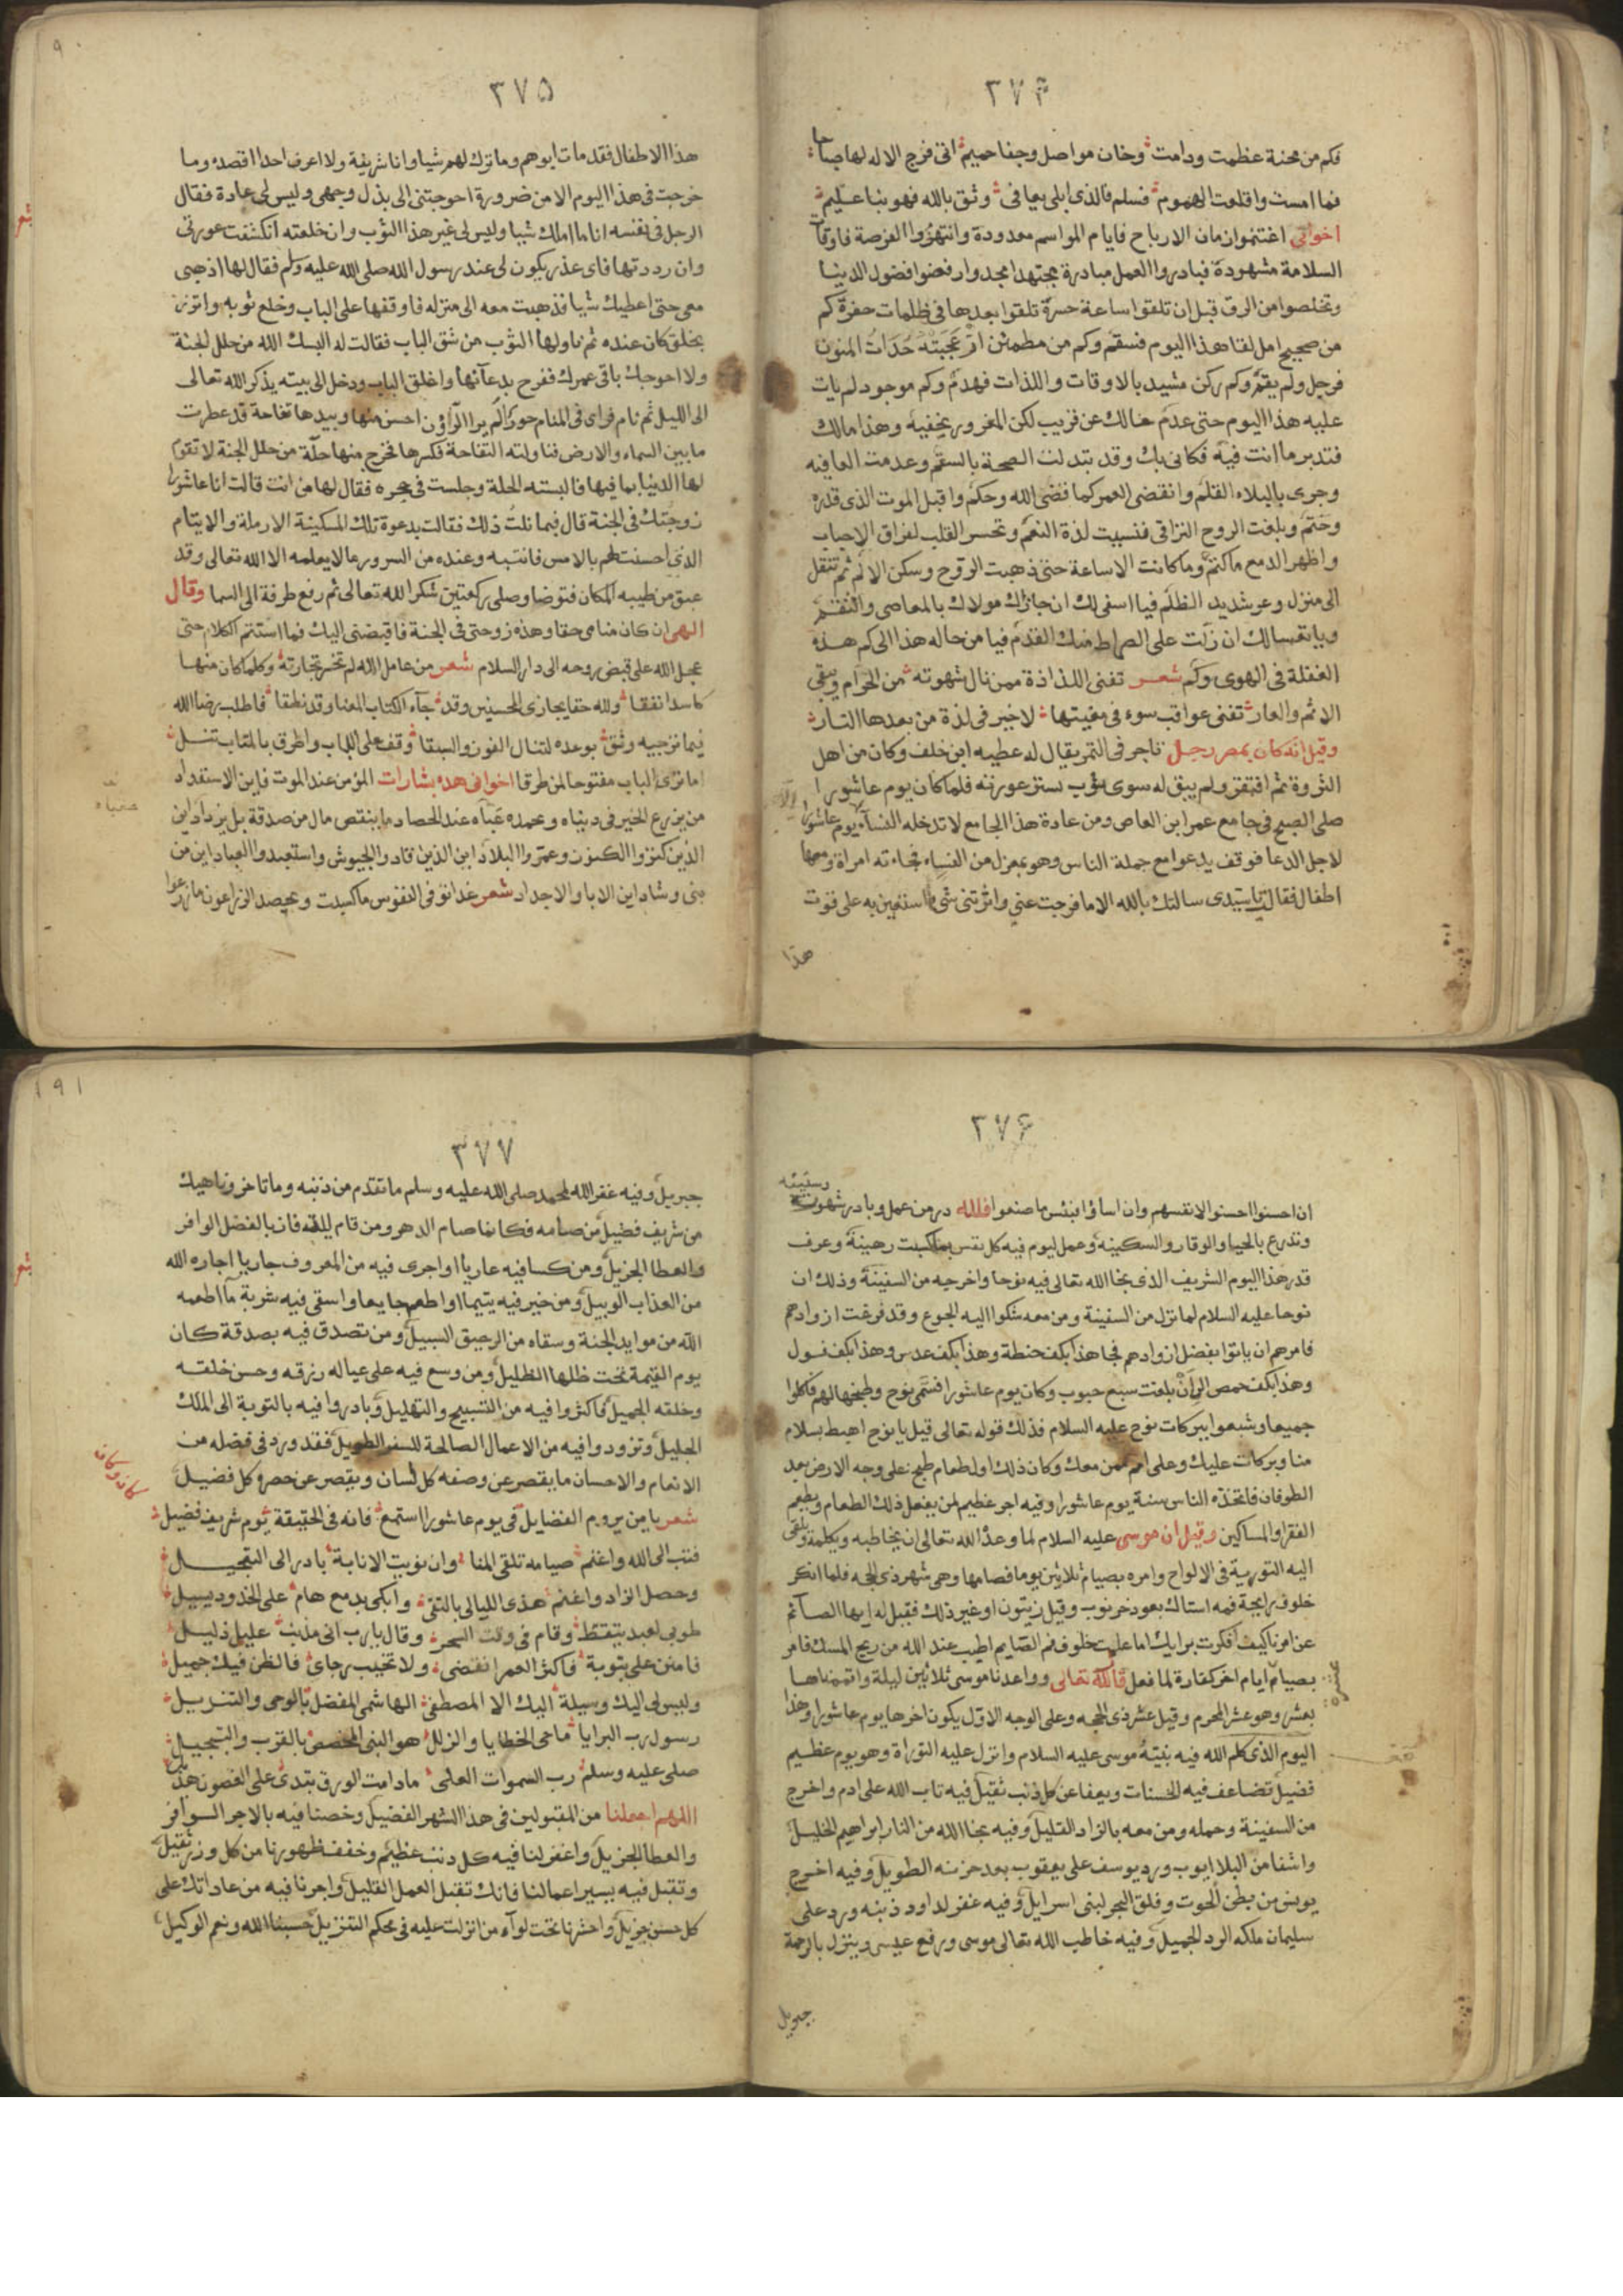 ٣٧٤
فكم من محنة عظمت ودامت وخان مواصل وجفا حميم اتى فرج الاله لها صباحا
فما امست واقلعت الهموم فسلم فالذى ابلى يعافى وثق بالله فهو بنا عليم
اخوانى اغتنموا زمان الارباح فايام المواسم معدودة وانتهزوا الفرصة فاوقات
السلامة مشهودة فبادروا العمل مبادرة مجتهد امجد وارفضوا فضول الدنيا
وتخلصوا من الرق قبل ان تلقوا ساعة حسرة تلقوا بعدها فى ظلمات حفرة كم
من صحيح امل لقا هذا اليوم فسقم وكم من مطمئن ازعجته حداة المنون
فرحل ولم يقم وكم ركن مشيد بالاوقات واللذات فهدم وكم موجود لم يات
عليه هذا اليوم حتى عدم حالك عن قريب لكن المغرور يخفيه وهذا مالك
فتدبر ما انت فيه فكانى بك وقد بتدلت الصحة بالسقم وعدمت العافيه
وجرى بالبلاء القلم وانقضى العمر كما قضى الله وحكم واقبل الموت الذى قدره
وحتم وبلغت الروح التراقى فنسيت لذة النعم وتحسر القلب لفراق الاحباب
واظهر الدمع ما كتم وما كانت الا ساعة حتى ذهبت الروح وسكن الالم ثم تنقل
الى منزل وعر شديد الظلم فيا اسفى لك ان جازاك مولاك بالمعاصى والنقم
ويا تعسا لك ان زلت على الصراط منك القدم فيا من حاله هذا الى كم هذه
الغفلة فى الهوى وكم شعر تفنى اللذاذة ممن نال شهوته من الحرام ويبقى
الاثم والعار تفنى عواقب سوء فى مغبتها لا خير فى لذة من بعدها النار
وقيل انه كان بمصر رجل تاجر فى التمر يقال له عطيه ابن خلف وكان من اهل
الثروة ثم افتقر ولم يبق له سوى ثوب يستر عورته فلما كان يوم عاشورا
صلى الصبح فى جامع عمر ابن العاص ومن عادة هذا الجامع لا تدخله النساء يوم عاشورا
لاجل الدعا فوقف يدعوا مع جملة الناس وهو بمعزل من النساء فجاءته امراة ومعها
اطفال فقالت يا سيدى سالتك بالله الا ما فرجت عنى واثرتنى بشى استعين به على قوت
هذا
٣٧٥
هذا الاطفال فقد مات ابوهم وما ترك لهم شيا وانا شريفة ولا اعرف احدا اقصده وما
خرجت فى هذا اليوم الا من ضرورة احوجتنى الى بذل وجهى وليس لى عادة فقال
الرجل فى نفسه انا ما املك شيا وليس لى غير هذا الثوب وان خلعته انكشفت عورتى
وان رددتها فاى عذر يكون لى عند رسول الله صلى الله عليه وسلم فقال لها اذهبى
معى حتى اعطيك شيا فذهبت معه الى منزله فاوقفها على الباب وخلع ثوبه واتزر
بخلق كان عنده ثم ناولها الثوب من شق الباب فقالت له البسك الله من حلل الجنة
ولا احوجك باقى عمرك ففرح بدعائها واغلق الباب ودخل الى بيته يذكر الله تعالى
الى الليل ثم نام فراى فى المنام حورا لم ير الراؤن احسن منها وبيدها تفاحة قد عطرت
ما بين السماء والارض فناولته التفاحة فكسرها فخرج منها حلة من حلل الجنة لا تقوم
لها الدنيا بما فيها فالبسته الحلة وجلست فى حجره فقال لها من انت قالت انا عاشورا
زوجتك فى الجنة قال فبما نلت ذلك فقالت بدعوة تلك المسكينة الارملة والايتام
الذى احسنت لهم بالامس فانتبه وعنده من السرور ما لا يعلمه الا الله تعالى وقد
عبق من طيبه المكان فتوضا وصلى ركعتين شكرا لله تعالى ثم رفع طرفه الى السما وقال
الهى ان كان منامى حقا وهذه زوجتى فى الجنة فاقبضنى اليك فما استتم الكلام حتى
عجل الله على قبض روحه الى دار السلام شعر من عامل الله لم تخسر تجارته وكلما كان منها
كاسدا نفقا والله حقا يجازى المحسنين وقد جآء الكتاب لمعنا وقد نطقا فاطلب رضا الله
فيما ترتجيه وثق بوعده لتنال الفوز والسبقا وقف على الباب واطرق بالمتاب تنل
اما ترى الباب مفتوحا لمن طرقا اخوانى هذه بشارات المؤمن عند الموت فاين الاستعداد
من يزرع الخير فى دنياه وعمده غبآه عند الحصاد ما ينقص مال من صدقة بل يزداد اين
الذين كنزوا الكنوز وعمروا البلاد اين الذين قادوا الجيوش واستعبدوا العباد اين من
بنى وشاد اين الابا والاجداد شعر غدا توفى النفوس ما كسبت ويحصد الزارعون ما زرعوا
٣٧٦
ان احسنوا احسنوا لانفسهم وان اساؤا فبئس ما صنعوا فلله در من عمل وبادر شهوته
وتدرع بالحيا والوقار والسكينة وعمل ليوم فيه كل نفس بما كسبت رهينة وعرف
قدر هذا اليوم الشريف الذى نجا الله تعالى فيه نوحا واخرجه من السفينة وذلك ان
نوحا عليه السلام لما نزل من السفينة ومن معه شكوا اليه الجوع وقد فرغت ازوادهم
فامرهم ان ياتوا بفضل ازوادهم فجا هذا بكف حنطة وهذا بكف عدس وهذا بكف فول
وهذا بكف حمص الى ان بلغت سبع حبوب وكان يوم عاشورا فسمى نوح وطبخها لهم فاكلوا
جميعا وشبعوا ببركات نوح عليه السلام فذلك قوله تعالى قيل يا نوح اهبط بسلام
منا وبركات عليك وعلى امم ممن معك وكان ذلك اول طعام طبخ على وجه الارض بعد
الطوفان فاتخذه الناس سنة يوم عاشورا وفيه اجر عظيم لمن يفعل ذلك الطعام ويطعم
الفقرا والمساكين وقيل ان موسى عليه السلام لما وعد الله تعالى ان يخاطبه ويكلمه ويلقى
اليه التورية فى الالواح وامره بصيام ثلاثين يوما فصامها وهى شهر ذى الحجه فلما انكر
خلوف رايحة فمه استاك بعود خرنوب وقيل زيتون او غير ذلك فقيل له ايها الصآئم
عن امرنا كيف افكرت برايك اما علمت خلوف فم الصايم اطيب عند الله من ريح المسك فامر
بصيام ايام اخر كفارة لما فعل قال الله تعالى وواعدنا موسى ثلاثين ليلة واتممناها
بعشر وهو عشر المحرم وقيل عشر ذى الحجه وعلى الوجه الاول يكون اخرها يوم عاشورا وهذا
اليوم الذى كلم الله فيه نبيه موسى عليه السلام وانزل عليه التوراة وهو يوم عظيم
فضيل تضاعف فيه الحسنات ويعفا عن كل ذنب ثقيل فيه تاب الله على ادم واخرج
من السفينة وحمله ومن معه بالزاد القليل وفيه نجا الله من النار ابراهيم الخليل
واشفا من البلا ايوب ورد يوسف على يعقوب بعد حزنه الطويل وفيه اخرج
يونس من بطن الحوت وفلق البحر لبنى اسرايل وفيه غفر لداود ذنبه ورد على
سليمان ملكه الرد الجميل وفيه خاطب الله تعالى موسى ورفع عيسى وينزل بالرحمة
جبريل
٣٧٧
جبريل وفيه غفر الله لمحمد صلى الله عليه وسلم ما تقدم من ذنبه وما تاخر وناهيك
من شريف فضيل من صامه فكانما صام الدهر ومن قام ليله فاز بالفضل الوافر
والعطا الجزيل ومن كسا فيه عاريا او اجرى فيه من المعروف جاريا اجاره الله
من العذاب الوبيل ومن خير فيه يتيما او اطعم جايعا واسقى فيه شربة ماً اطعمه
الله من موايد الجنة وسقاه من الرحيق السبيل ومن تصدق فيه بصدقة كان
يوم القيمة تحت ظلها الظليل ومن وسع فيه على عياله رزقه وحسن خلقه
وخلقه الجميل فاكثروا فيه من التسبيح والتهليل وبادروا فيه بالتوبة الى الملك
الجليل وتزودوا فيه من الاعمال الصالحة للسفر الطويل فقد ورد فى فضله من
الانعام والاحسان ما يقصر عن وصفه كل لسان ويقصر عن حصره كل فضيل
شعر يا من يروم الفضايل فى يوم عاشورا استمع فانه فى الحقيقة يوم شريف فضيل
فتب الى الله واغتم صيامه تلقى المنا وان نويت الانابة بادر الى التبجيل
وحصل الزاد واغنم هذى الليالى بالتقى وابكى بدمع هام على الخدود يسيل
طوبى لعبد يتيقظ وقام فى وقت السحر وقال يا رب انى مذنب عليل ذليل
فامنن على بتوبة فاكثر العمر انقضى ولا تخيب رجاى فالظن فيك جميل
وليس لى اليك وسيلة اليك الا المصطفى الهاشمى المفضل بالوحى والتنزيل
رسول رب البرايا ماحى الخطايا والزلل هو النبى المخصص بالقرب والتبجيل
صلى عليه وسلم رب السموات العلى ما دامت الورق تبدى على الغصون هديل
اللهم اجعلنا من المقبولين فى هذا الشهر الفضيل وخصنا فيه بالاجر السوافر
والعطا الجزيل واغفر لنا فيه كل ذنب عظيم وخفف ظهورنا من كل وزر ثقيل
وتقبل فيه يسير اعمالنا فانك تقبل العمل القليل واجرنا فيه من عاداتك على
كل حسن جزيل واحشرنا تحت لوآء من انزلت عليه فى محكم التنزيل حسبنا الله ونعم الوكيل